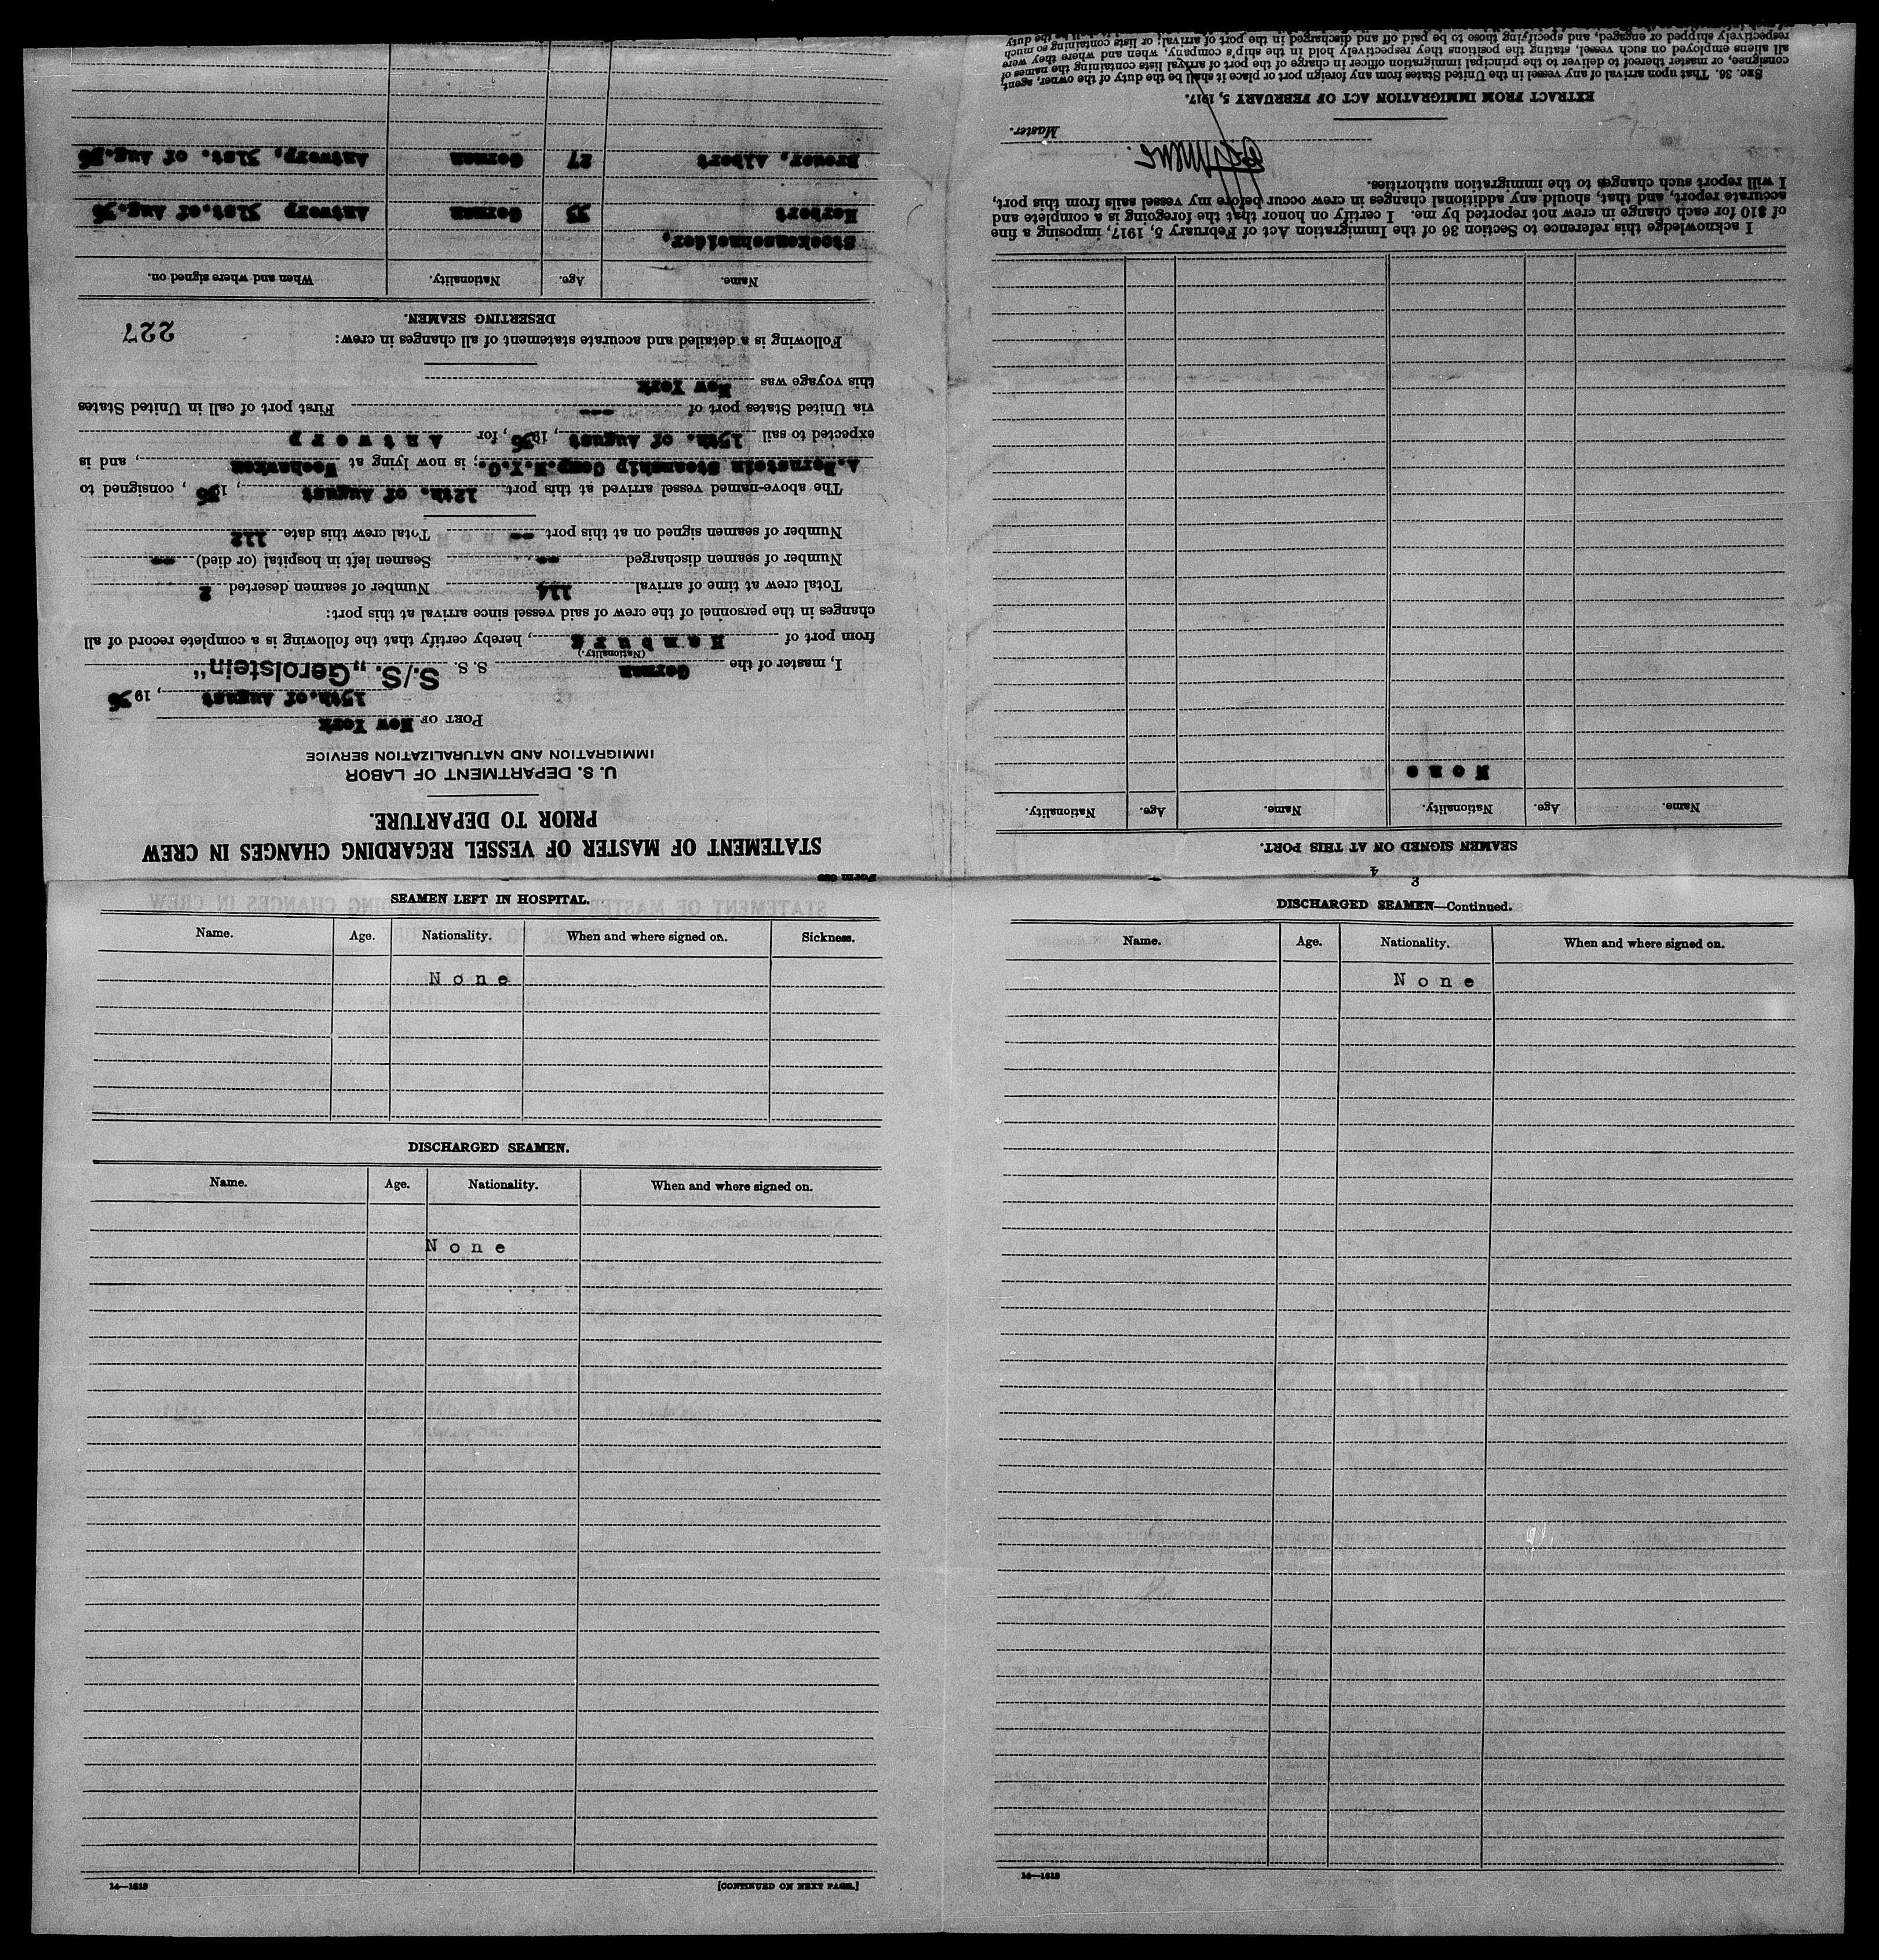 Form 689
STATEMENT OF MASTER OF VESSEL REGARDING CHANGES IN CREW
PRIOR TO DEPARTURE.
U. S. DEPARTMENT OF LABOR
IMMIGRATION AND NATURALIZATION SERVICE
PORT OF New York
15th.of August, 1936
I, master of the German S. S. S./S. „Gerolstein"
(Nationality.)
from port of Hamburg, hereby certify that the following is a complete record of all
changes in the personnel of the crew of said vessel since arrival at this port:
Total crew at time of arrival 114 Number of seamen deserted 2
Number of seamen discharged -- Seamen left in hospital (or died) --
Number of seamen signed on at this port -- Total crew this date 112
The above-named vessel arrived at this port 12th. of August, 1936, consigned to
A.Bernstein Steamship Comp.N.Y.C.; is now lying at Weehawken, and is
expected to sail 15th. of August, 1936, for Antwerp
via United States port of --- First port of call in United States
this voyage was New York
Following is a detailed and accurate statement of all changes in crew:
227
DESERTING SEAMEN.
Name. Age. Nationality. When and where signed on.
Stockenschneider,
Herbert 33 German Antwerp 31st.of.Aug.36
Breuer, Albert 27 German Antwerp, 31st. of Aug.36
SEAMEN LEFT IN HOSPITAL.
Name. Age. Nationality. When and where signed on. Sickness.
None
DISCHARGED SEAMEN.
Name. Age. Nationality. When and where signed on.
None
14—1613
[CONTINUED ON NEXT PAGE.]
3
DISCHARGED SEAMEN—Continued.
Name. Age. Nationality. When and where signed on.
None
14—1613
4
SEAMEN SIGNED ON AT THIS PORT.
Name. Age. Nationality. Name. Age. Nationality.
None
I acknowledge this reference to Section 36 of the Immigration Act of February 5, 1917, imposing a fine
of $10 for each change in crew not reported by me. I certify on honor that the foregoing is a complete and
accurate report, and that, should any additional changes in crew occur before my vessel sails from this port,
I will report such changes to the immigration authorities.
Master.
EXTRACT FROM IMMIGRATION ACT OF FEBRUARY 5, 1917.
SEC. 36. That upon arrival of any vessel in the United States from any foreign port or place it shall be the duty of the owner, agent,
consignee, or master thereof to deliver to the principal immigration officer in charge of the port of arrival lists containing the names of
all aliens employed on such vessel, stating the positions they respectively hold in the ship's company, when and where they were
respectively shipped or engaged, and specifying those to be paid off and discharged in the port of arrival; or lists containing so much